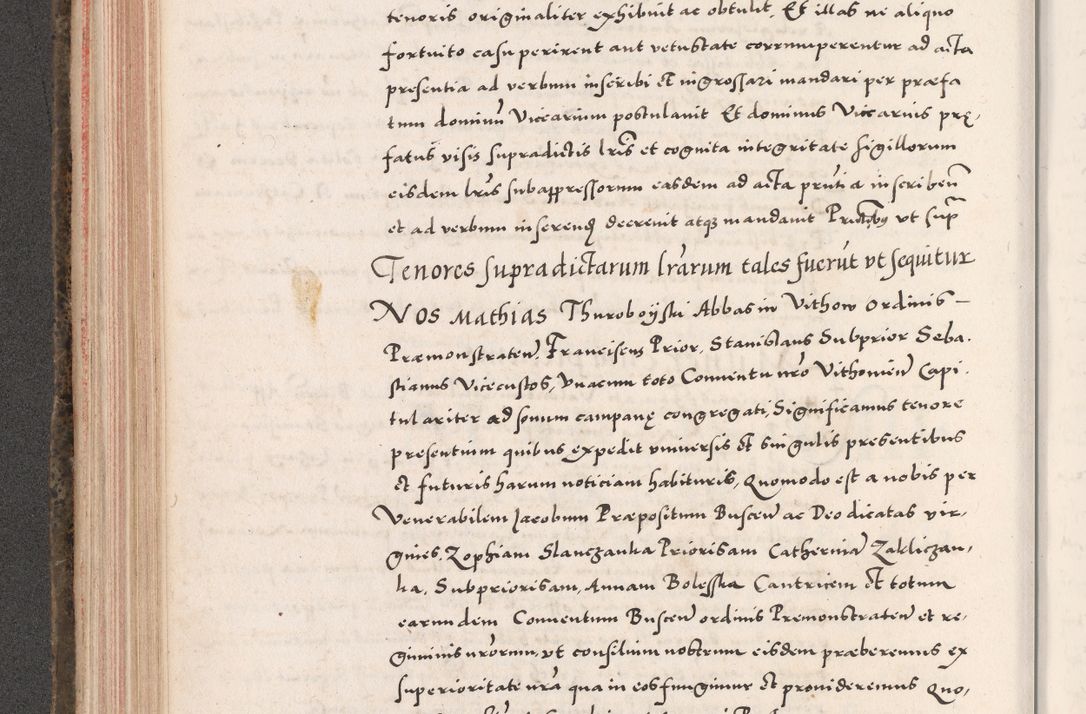 tenoris originaliter exhibuit ac obtulit. Et illas ne aliquo
fortuito casu perirent aut vetustate corrumperentur ad acta
presentia ad verbum inscribi et ingrossari mandari per præfa
tum dominū Vicearium postulauit Et dominus Vicearius prę,
fatus visis supradictis lr̄is et cognita integritate sigillorum
eisdem lr̄is subappressorum easdem ad acta pr̄ntia inscriben̄
et ad verbum inserend decreuit atq3 mandauit Pr̄ntibus vt sup̄
Tenores supradictarum lr̄arum tales fuerūt vt sequitur
Nos Mathias Thuroboyski Abbas in Vithow ordinis –
Præmonstraten̄. Franciscus Prior, Stanislaus Subprior Seba.
stianus Vicecustos, vnacum toto Conuentu nr̄o Vithouien̄ Capi.
tulariter ad sonum campanę congregati, Significamus tenore
presentium quibus expedit vniuersis et singulis presentibus
et futuris harum noticiam habituris, Quomodo est a nobis per
Venerabilem Jacobum Præpositum Buscen̄ ac Deo dicatas vir,
gines, Zophiam Slanczanka Priorisam Catherinā Zakliczan,
ka, Subpriorisam, Annam Bolesska Cantricem et totum
earundem Conuentum Buscen̄ ordinis Premonstraten̄ et re,
giminis nr̄orum, vt consilium nostrum eisdem præberemus ex
superioritate nr̄a qua in eos fungimur et prouideremus Quo,